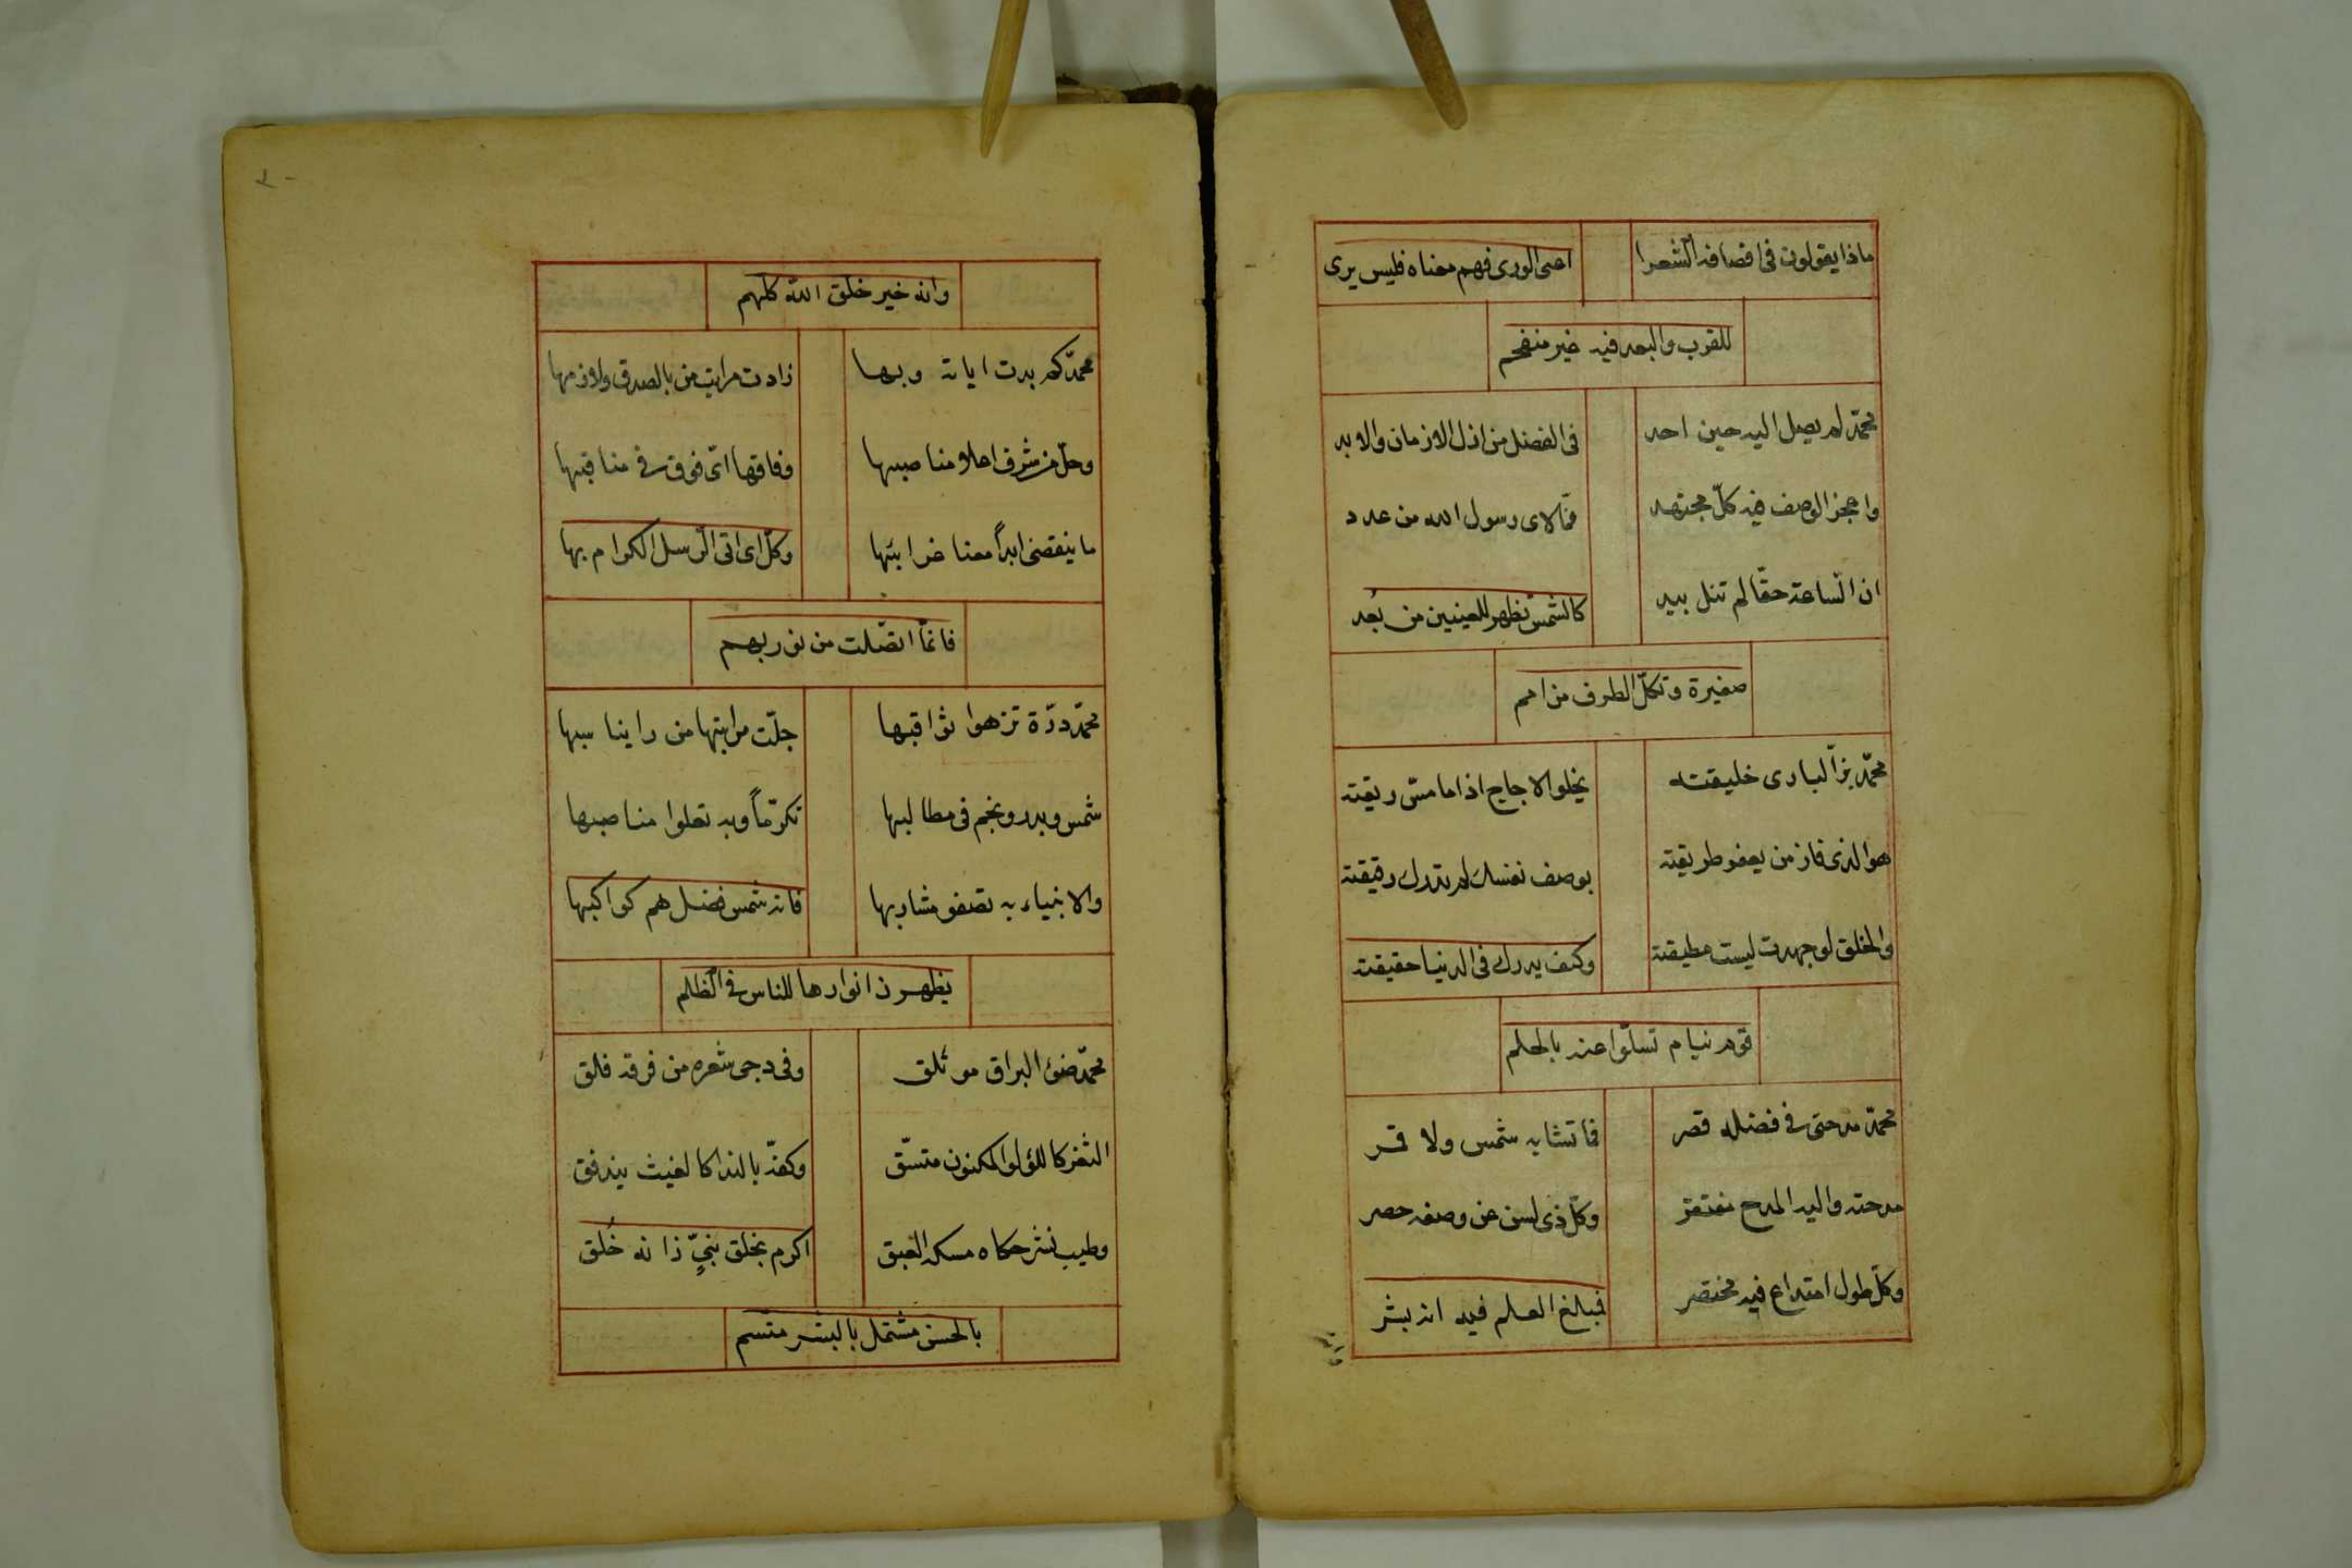 ماذا يقولون في اقصافه الشعرا اعى الورى فهم معناه فليس يرى
للقرب والبعد فيه غير منفحم
محمّد لم يصل اليه حين احد في الفضل من ازل الازمان والابد
واعجز الوصف فيه كلّ مجتهد فما لاى رسول الله من عدد
ان السّاعة حقّا لم تنل بيد كالشمس تظهر للعينين من بُعد
صغيرة وتكلّ الطرف من امم
محمّد بزّ البارى خليقته يحلوا الاجاج اذا ما مسّ ريقته
هو الذى فاز من يعفو طريقته بوصف نفسك لم تدرك رقيقته
والخلق لو جهدت ليست مطيقته وكيف يدرك في الدنيا حقيقته
قوم نيام تسلّوا عنه بالحلم
محمّد مدحتى في فضله قصر فما تشابه شمس ولا قمر
مدحته واليه المدح مفتقر وكلّ ذى لسن عن وصفه حصر
وكلّ طول امتداح فيه مختصر فمبلغ العلم فيه انه بشر
وانه
وانه خير خلق الله كلهم
محمّد كم بدت اياته وبها زادت مراتب من بالصدق ولازمها
وحلّ من شرف اعلا مناصبها وفاقها اىّ فوق في مناقبها
ما ينقضى ابداً معنا غرايبها وكلّ اى اتى الرّسل الكرام بها
فانمّا اتصّلت من نوربهم
محمّد درّة تزهوا ثواقبها جلّت مراتبها من راينا سبها
شمس وبدر ونجم فى مطالبها تكرّماً وبه تعلوا مناصبها
والانبياء به تصفو مشاربها فانه شمس فضل هم كواكبها
يظهرن انوارها للناس في الظلم
محمّد ضوئ البراق مؤتلق وفى دجى شعره من فرقه فلق
الثغر كاللؤلؤ المكنون متسّق وكفّه بالندا كالغيث يندفق
وطيب نشر حكاه مسكه العبق اكرم بخلق نبيّ ذانه خُلق
بالحسن مشتمل بالبشر متسم